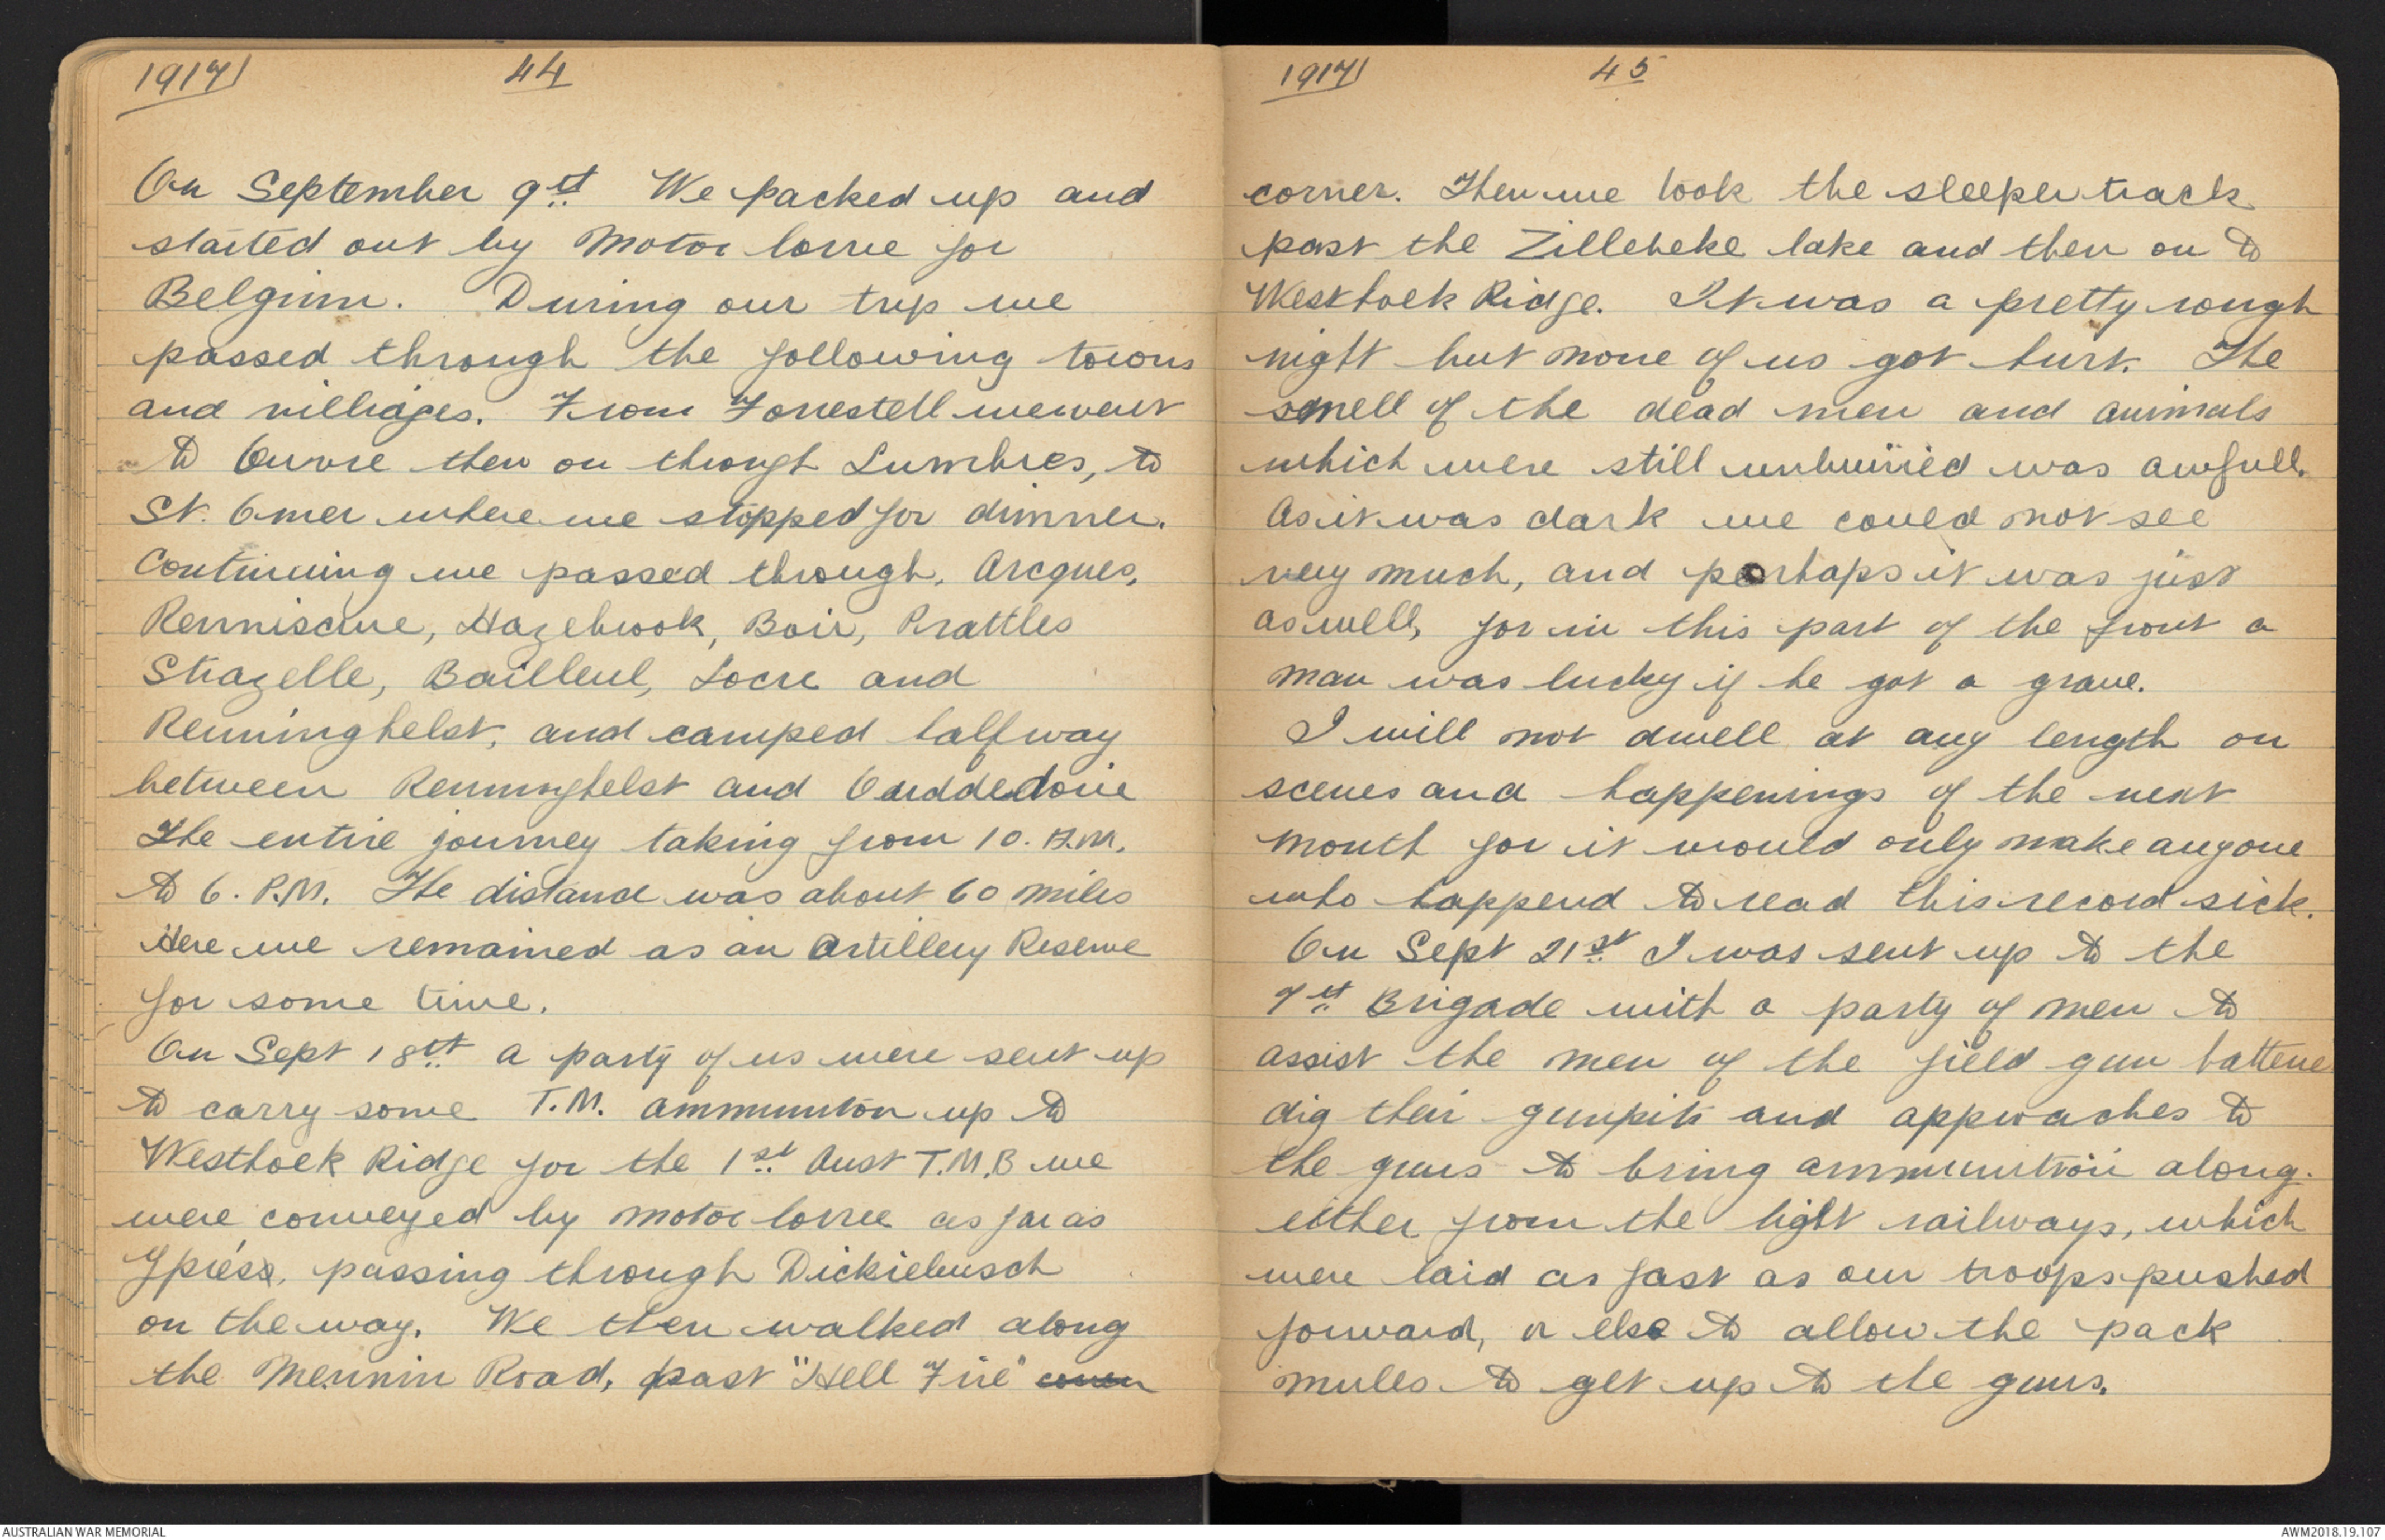 1917
44
On September 9th We packed up and
started out by Motor lorrie for
Belgium. During our trip we
passed through the following towns
and villiages. From Forrestell we went
to Ouvre then on through Lumbres, to
St. Omer where we stopped for dinner.
Continuing we passed through, Arcques,
Renniscure, Hazebrook, Borre, Prattles
Strazelle, Bailleul, Locre and
Renninghelst, and camped halfway
between Renninghelst and Ouddedorie
The entire journey taking from 10. A.M.
to 6. P.M. The distance was about 60 miles
Here we remained as an Artillery Reserve
for some time.
On Sept 18th a party of us were sent up
to carry some T.M. ammuniton up to
Westhoek Ridge for the 1st Aust T.M.B we
were conveyed by motor lorree as far as
Ypres, passing through Dickiebusch
on the way. We then walked along
the Mennin Road, past "Hell Fire" corner
1917
45
corner. Then we took the sleeper track
past the Zillebeke lake and then on to
Westhoek Ridge. It was a pretty rough
night but none of us got hurt. The
smell of the dead men and animals
which were still unburried was awfull.
As it was dark we could not see
very much, and perhaps it was just
as well, for in this part of the front a
man was lucky if he got a grave.
I will not dwell at any length on
scenes and happenings of the next
month for it would only make anyone
who happend to read this record sick.
On Sept 21st I was sent up to the
7th Brigade with a party of men to
assist the men of the field gun batterie
dig their gunpits and approaches to
the guns to bring ammunition along.
either from the light railways, which
were laid as fast as our troops pushed
forward, or else to allow the pack
mules to get up to the guns.
AUSTRALIAN WAR MEMORIAL
AWM2018.19.107